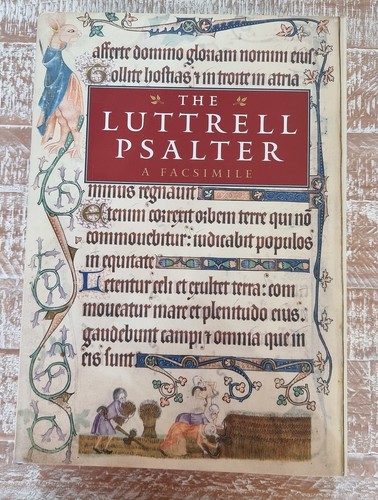 afferte domino gloriam nomini eius.
Tollite hostias ⁊ in troite in atria
THE
LUTTRELL
PSALTER
A FACSIMILE
minus regnauit
Etenim correxit orbem terre qui nō
commouebitur: iudicabit populos
in equitate
Letentur celi et exultet terra: com
moueatur mare et plenitudo eius.
gaudebunt campi ⁊ omnia que in
eis sunt